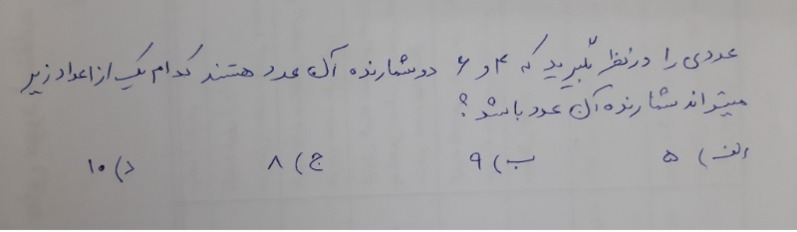 عددی را در نظر بگیرید که ۴ و ۶ دو شمارنده آن عدد هستند کدام یک از اعداد زیر
میتواند شمارنده آن عدد باشد ؟
الف) ۵ ب) ۹ ج) ۸ د) ۱۰